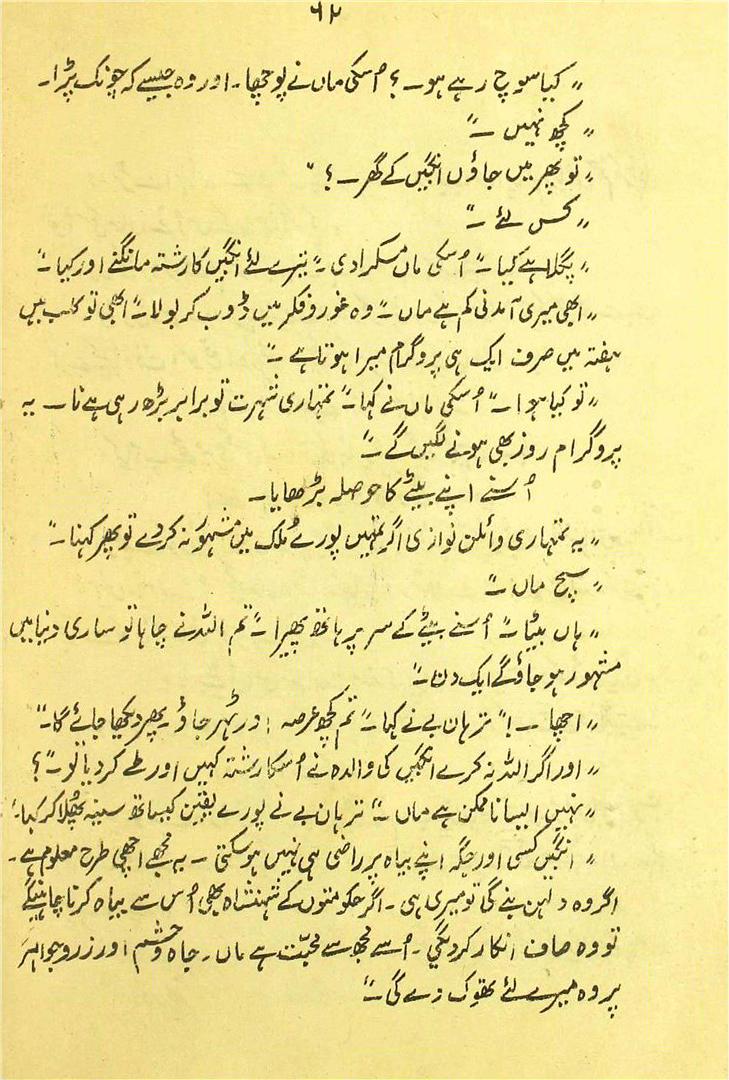 ۶۲
" کیا سوچ رہے ہو ۔ ؟ اُسکی ماں نے پوچھا ۔ اور وہ جیسے کہ چونک پڑا ۔
" کچھ نہیں ۔"
" تو پھر میں جاؤں انگبیں کے گھر ۔ ؟ "
" کس لئے ۔"
" پگلا ہے کیا ۔" اُسکی ماں مسکرا دی ۔" تیرے لئے انگبیں کا رشتہ مانگنے اور کیا ۔"
" ابھی میری آمدنی کم ہے ماں ۔" وہ غور و فکر میں ڈوب کر بولا ۔" ابھی تو کلب میں
ہفتہ میں صرف ایک ہی پروگرام میرا ہوتا ہے ۔"
" تو کیا ہوا ۔" اُسکی ماں نے کہا ۔" تمہاری شہرت تو برابر بڑھ رہی ہے نا ۔ یہ
پروگرام روز بھی ہونے لگیں گے ۔"
اُسنے اپنے بیٹے کا حوصلہ بڑھایا ۔
" یہ تمہاری وائلن نوازی اگر تمہیں پورے مُلک میں مشہور نہ کر دے تو پھر کہنا ۔"
" سچ ماں ۔"
" ہاں بیٹا ۔" اُسنے بیٹے کے سر پر ہاتھ پھیرا ۔" تم اللہ نے چاہا تو ساری دنیا میں
مشہور ہو جاؤ گے ایک دن ۔"
" اچھا ۔ !" نرہان بے نے کہا ۔" تم کچھ عرصہ اور ٹہر جاؤ پھر دیکھا جائے گا ۔"
" اور اگر اللہ نہ کرے انگبیں کی والدہ نے اُسکا رشتہ کہیں اور طے کر دیا تو ۔" ؟
" نہیں ایسا ناممکن ہے ماں ۔" نرہان بے نے پورے یقین کیساتھ سینہ پھُلا کر کہا ۔"
" انگبیں کسی اور جگہ اپنے بیاہ پر راضی ہی نہیں ہو سکتی ۔ یہ مجھے اچھی طرح معلوم ہے ۔
اگر وہ دلہن بنے گی تو میری ہی ۔ اگر حکومتوں کے شہنشاہ بھی اُس سے بیاہ کرنا چاہینگے
تو وہ صاف انکار کر دیگی ۔ اُسے مجھ سے محبّت ہے ماں ۔ جاہ و حشم اور زر و جواہر
پر وہ میرے لئے تھوک دے گی ۔"